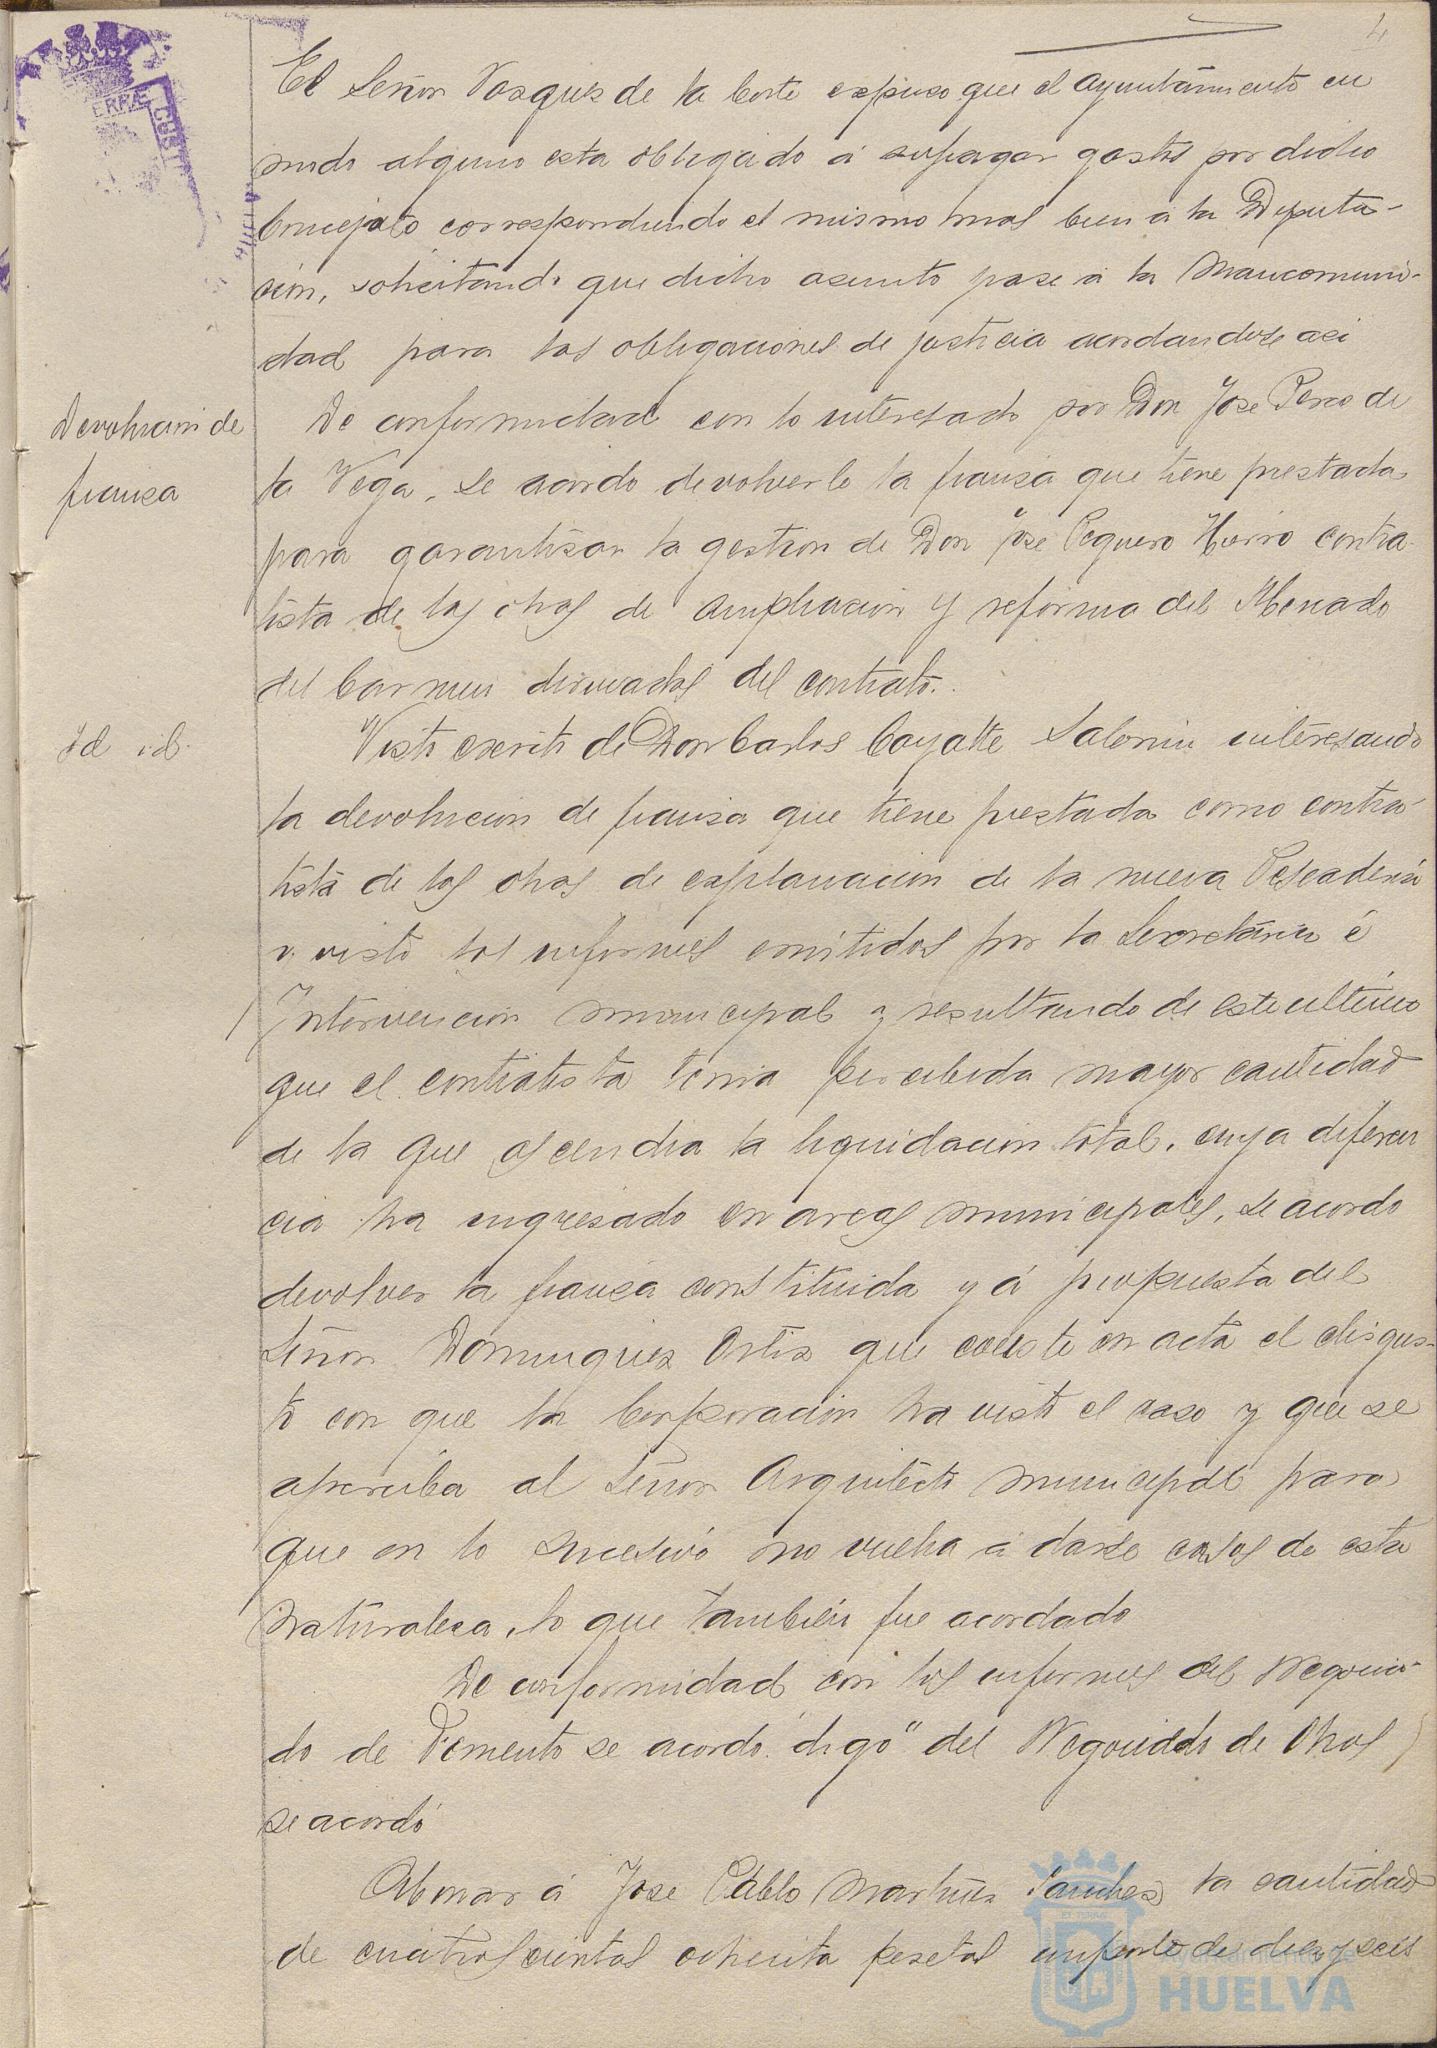 4
El Señor Vazquez de la Corte expuso que el Ayuntamiento en
modo alguno esta obligado á sufragar gastos por dicho
correspondiendo el mismo mas bien á la Diputa-
ción, solicitando que dicho asunto pase á la Mancomuni-
dad para las obligaciones de justicia acordandose asi
Devolucion de
fianza
De conformidad con lo interesado por Don Jose Perez de
la Vega, se acordo devolverle la fianza que tiene prestada
para garantizar la gestion de Don Jose Peguero Hierro contra-
tista de las obras de ampliacion y reforma del Mercado
del Carmen derivadas del contrato.
Id id.
Visto escrito de Don Carlos Cayatte Salomin interesando
la devolucion de fianza que tiene prestada como contra-
tista de las obras de explanacion de la nueva Pescaderia
y visto los informes emitidos por la Secretaria é
Intervencion municipal y resultando de este ultimo
que el contratista tenia percibida mayor cantidad
de la que ascendia la liquidacion total, cuya diferen
cia ha ingresado en arcas municipales, se acordo
devolver la fianza constituida y á propuesta del
Señor Dominguez Ortiz que conste en acta el disgus-
to con que la Corporacion ha visto el caso y que se
aperciba al Señor Arquitecto municipal para
que en lo sucesivo no vuelva á darse casos de esta
naturaleza, lo que tambien fue acordado
De conformidad con los informes del Negocia-
do de Fomento se acordó "digo" del Negociado de Obras
se acordó
Abonar á Jose Pablo Martinez Sanchez la cantidad
de cuatroscientas ochenta pesetas importe de diez y seis
Ayuntamiento de
HUELVA